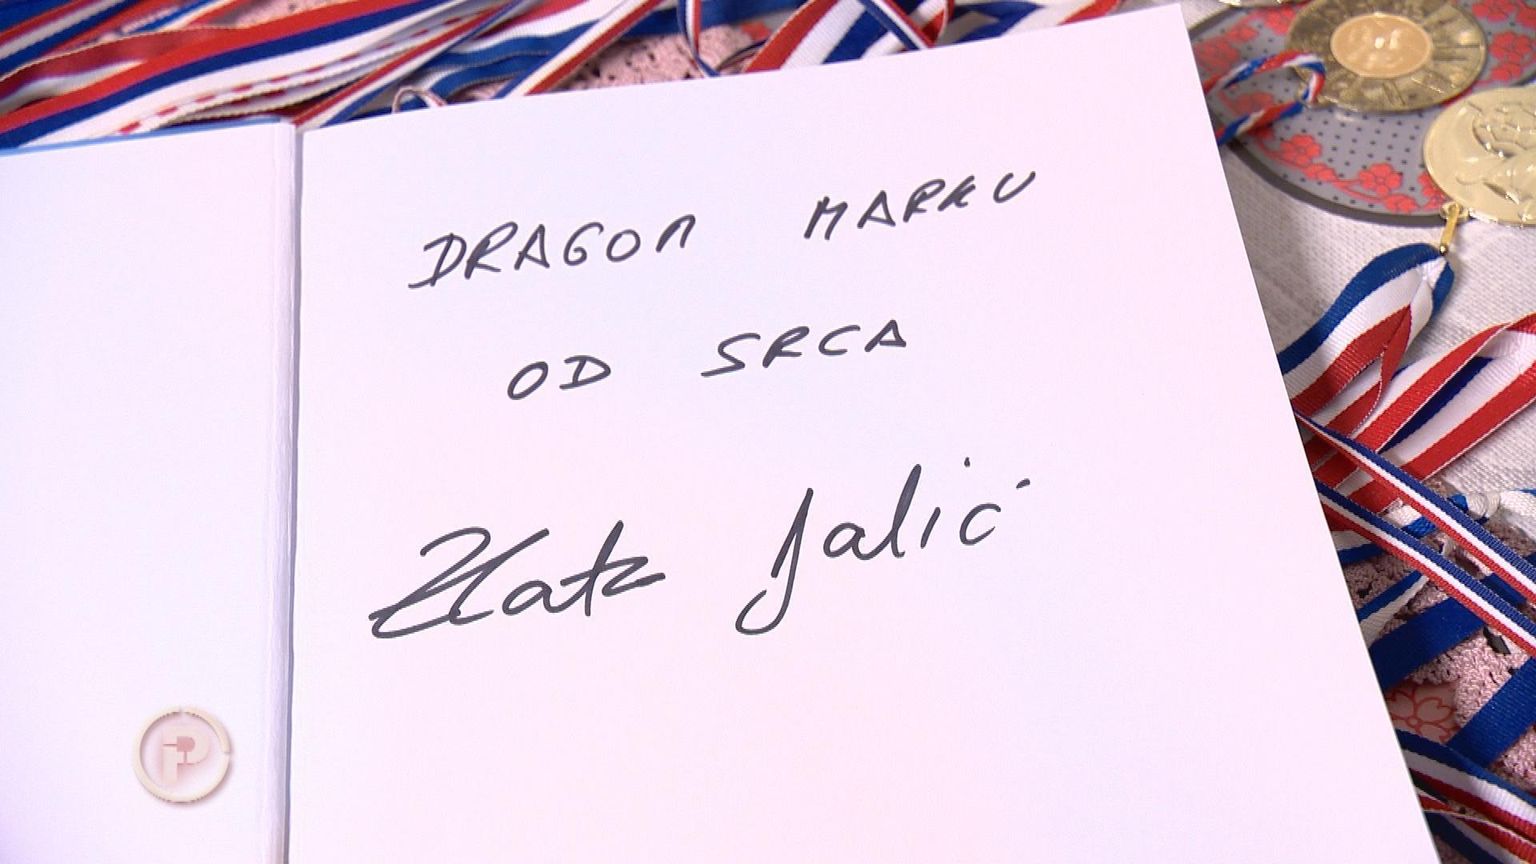 DRAGOM MARKU
OD SRCA
Zlatko Jalić
P